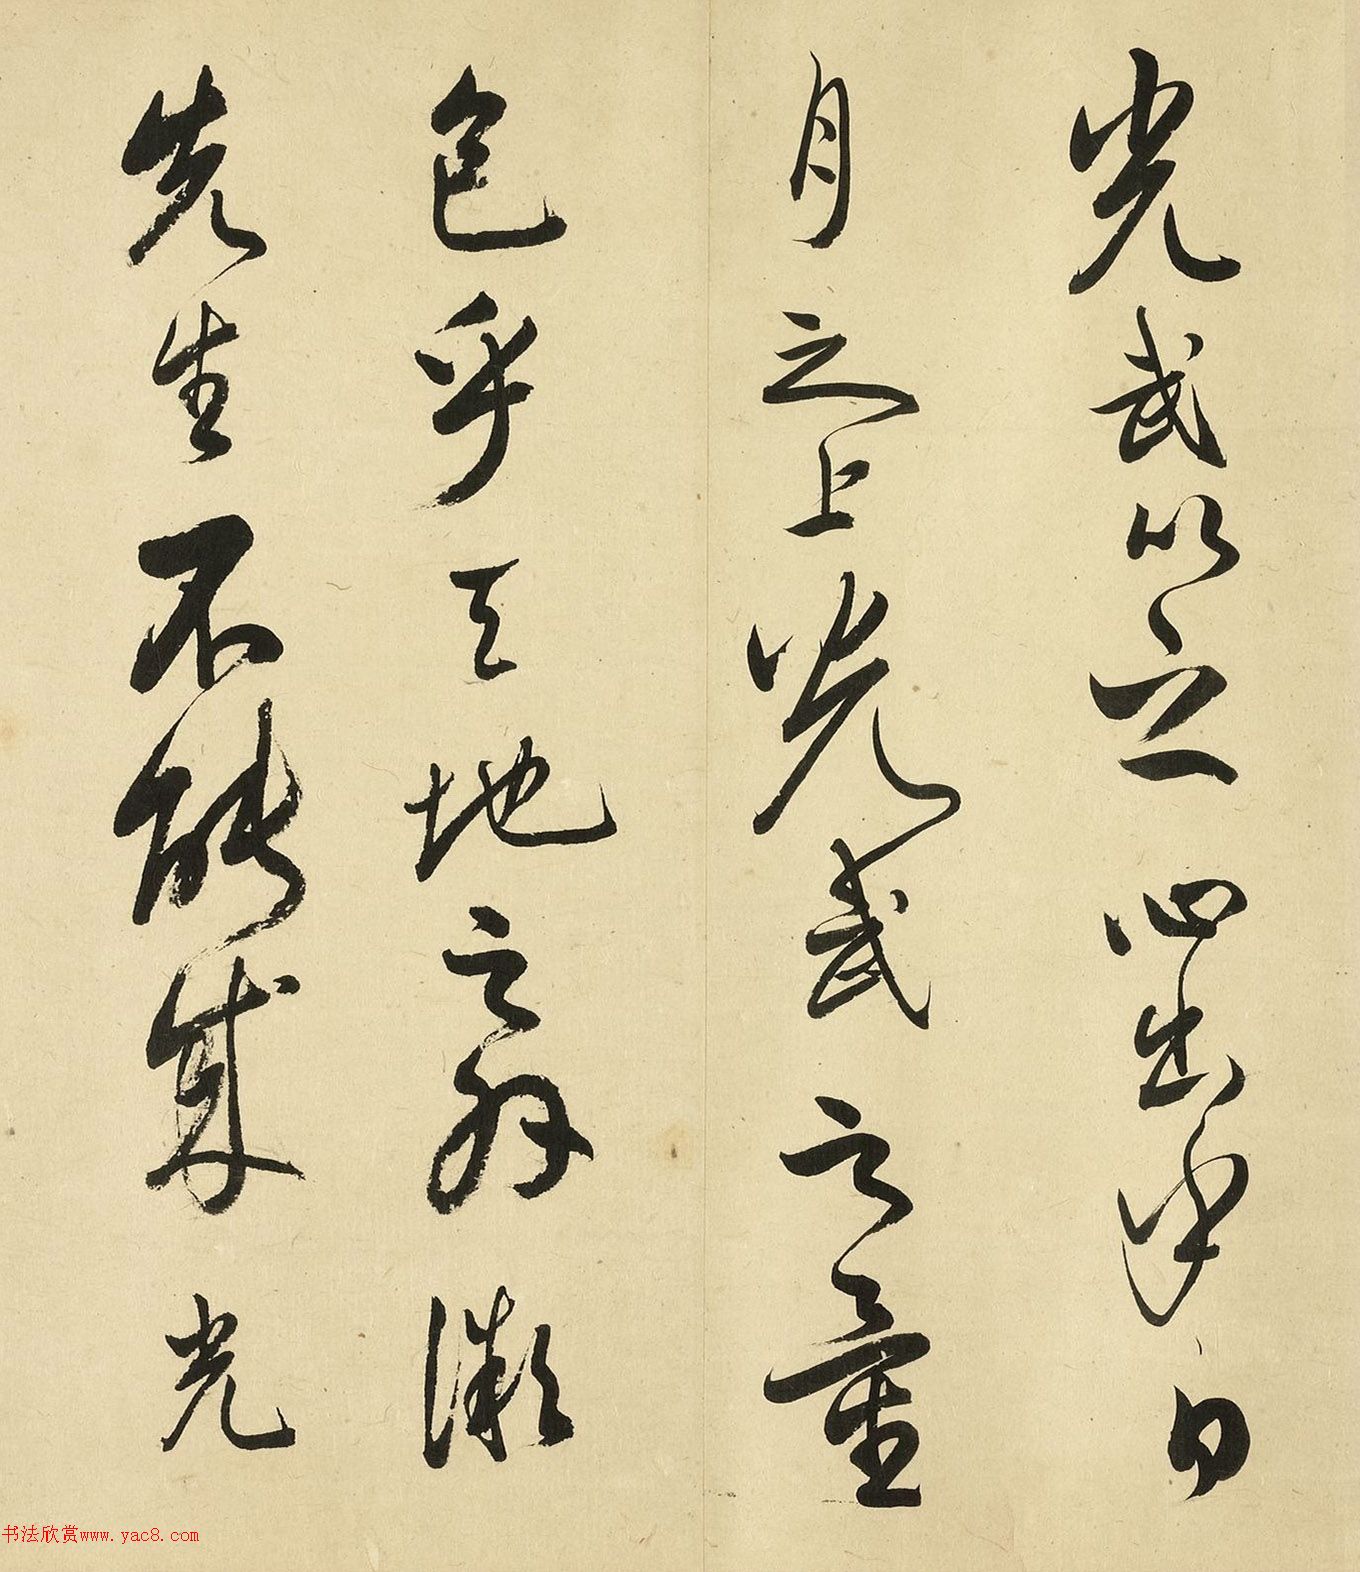 光武以之心出乎日
月之上光武之量
包乎天地之外微
先生不能成光
书法欣赏www.yac8.com